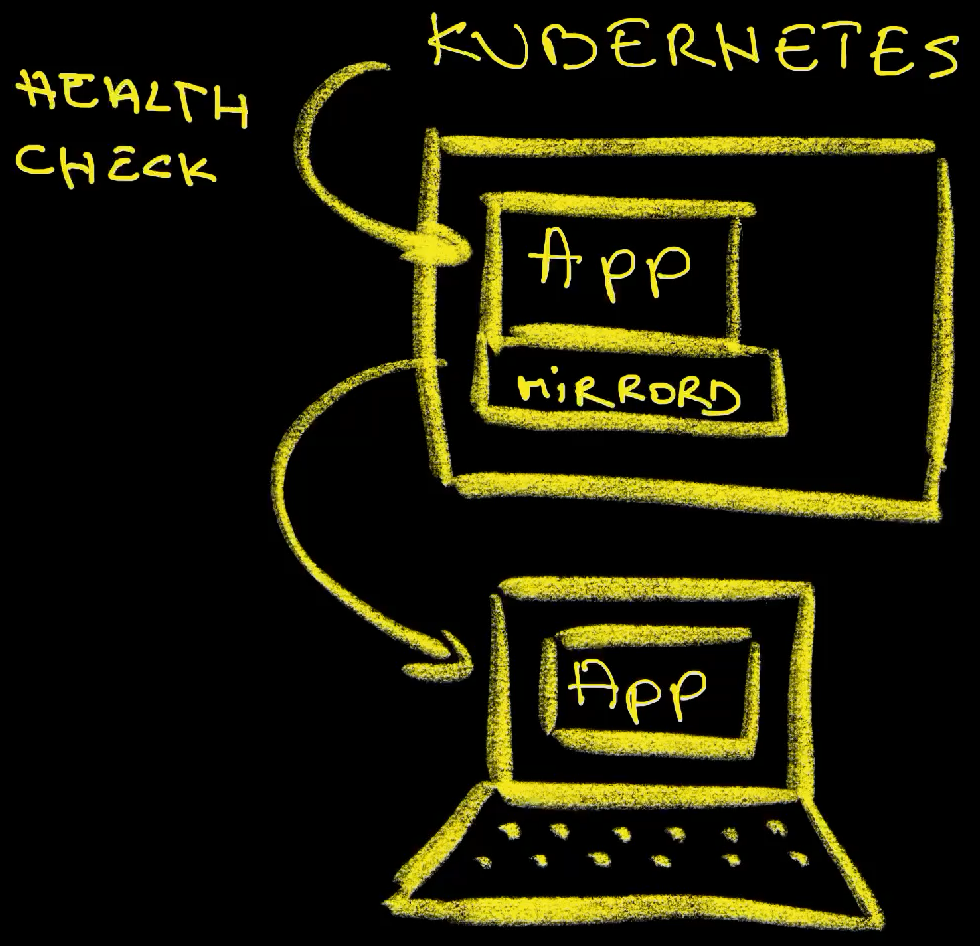 KUBERNETES
HEALTH
CHECK
App
MIRRORD
App